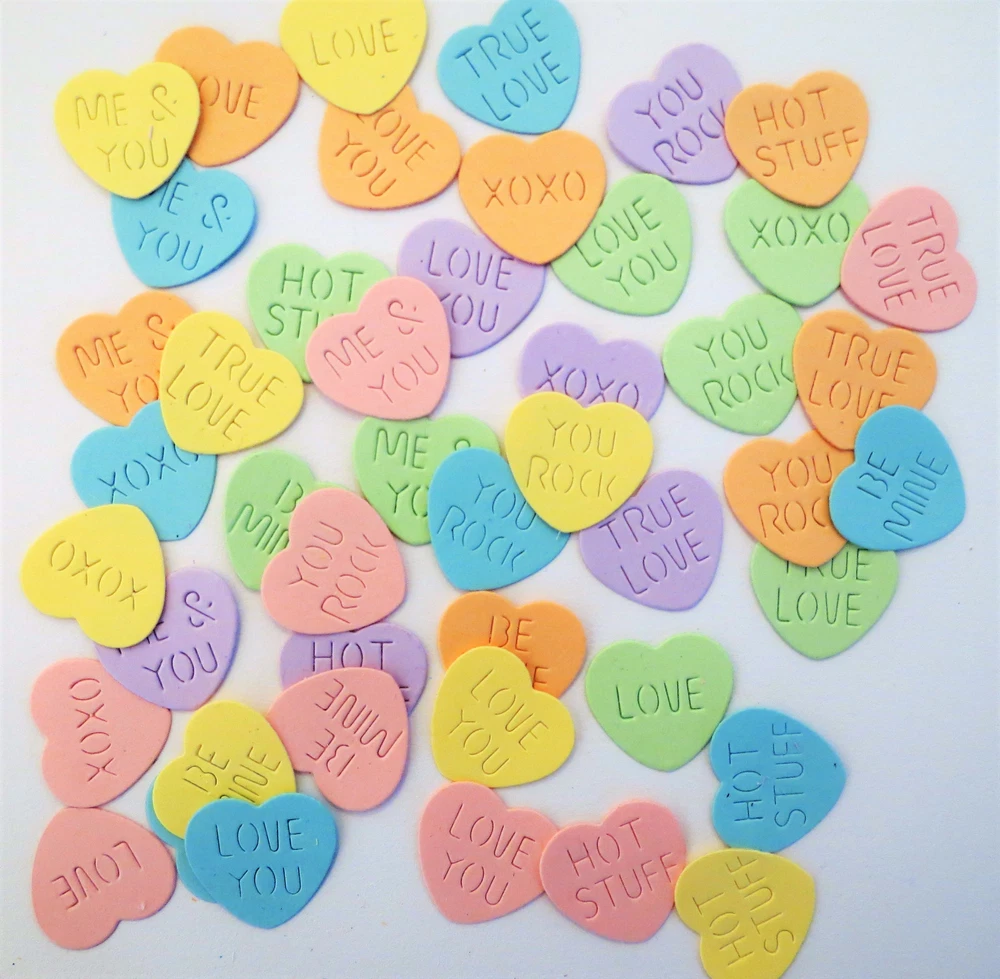 LOVE
TRUE
LOVE
ME &
YOU
OVE
LOVE
YOU
YOU
ROCK
HOT
STUFF
XOXO
E &
YOU
LOVE
YOU
XOXO
TRUE
LOVE
HOT
STU
LOVE
YOU
ME &
YOU
ME &
YO
TRUE
LOVE
XOXO
YOU
ROCK
TRUE
LOVE
XOXO
ME &
YO
YOU
ROCK
YOU
ROC
BE
MINE
B
MIN
YOU
ROCK
YOU
ROCK
TRUE
LOVE
TRUE
LOVE
XOXO
E &
YOU
HOT
BE
E
LOVE
YOU
LOVE
XOXO
BE
MINE
BE
MINE
HOT
STUFF
LOVE
LOVE
YOU
LOVE
YOU
HOT
STUFF
HOT
STUFF